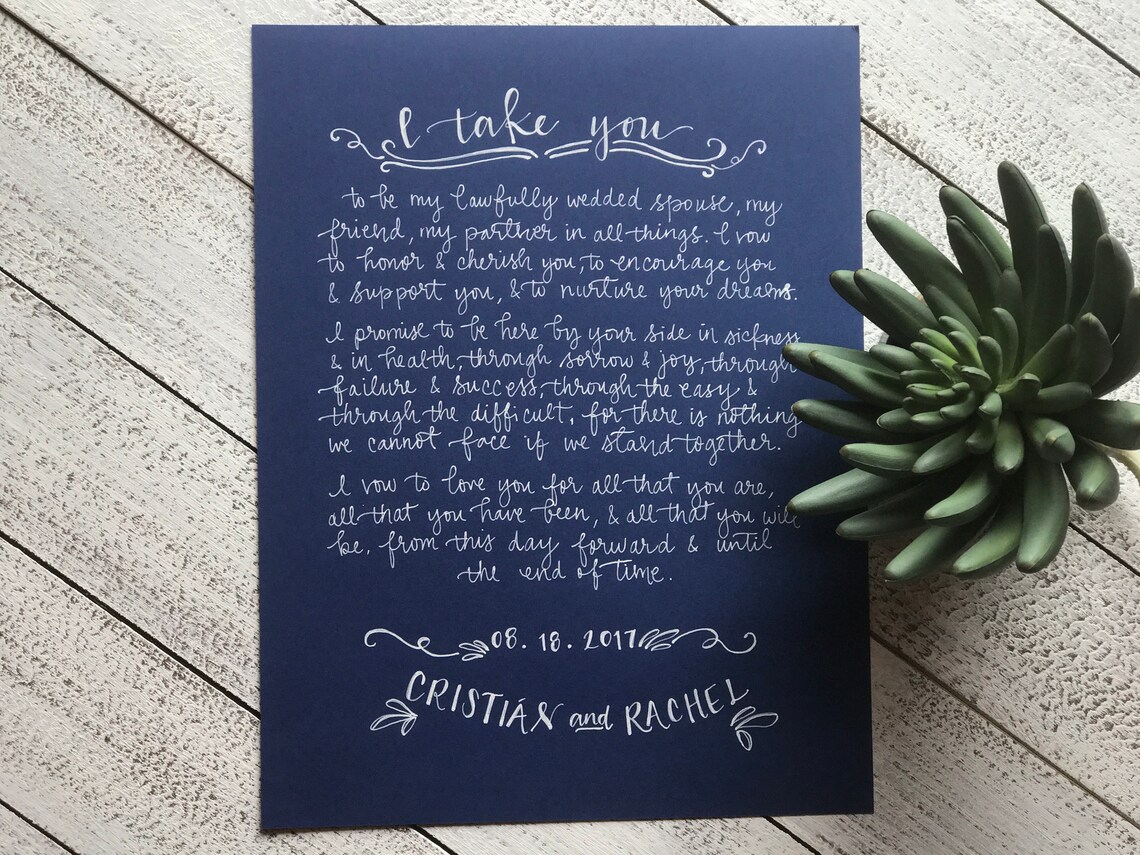 I take you
to be my lawfully wedded spouse, my
friend, my partner in all things. I vow
to honor & cherish you, to encourage you
& support you, & to nurture your dreams.
I promise to be here by your side in sickness
& in health, through sorrow & joy, through
failure & success, through the easy &
through the difficult, for there is nothing
we cannot face if we stand together.
I vow to love you for all that you are,
all that you have been, & all that you will
be, from this day forward & until
the end of time.
08. 18. 2017
CRISTIÁN and RACHEL